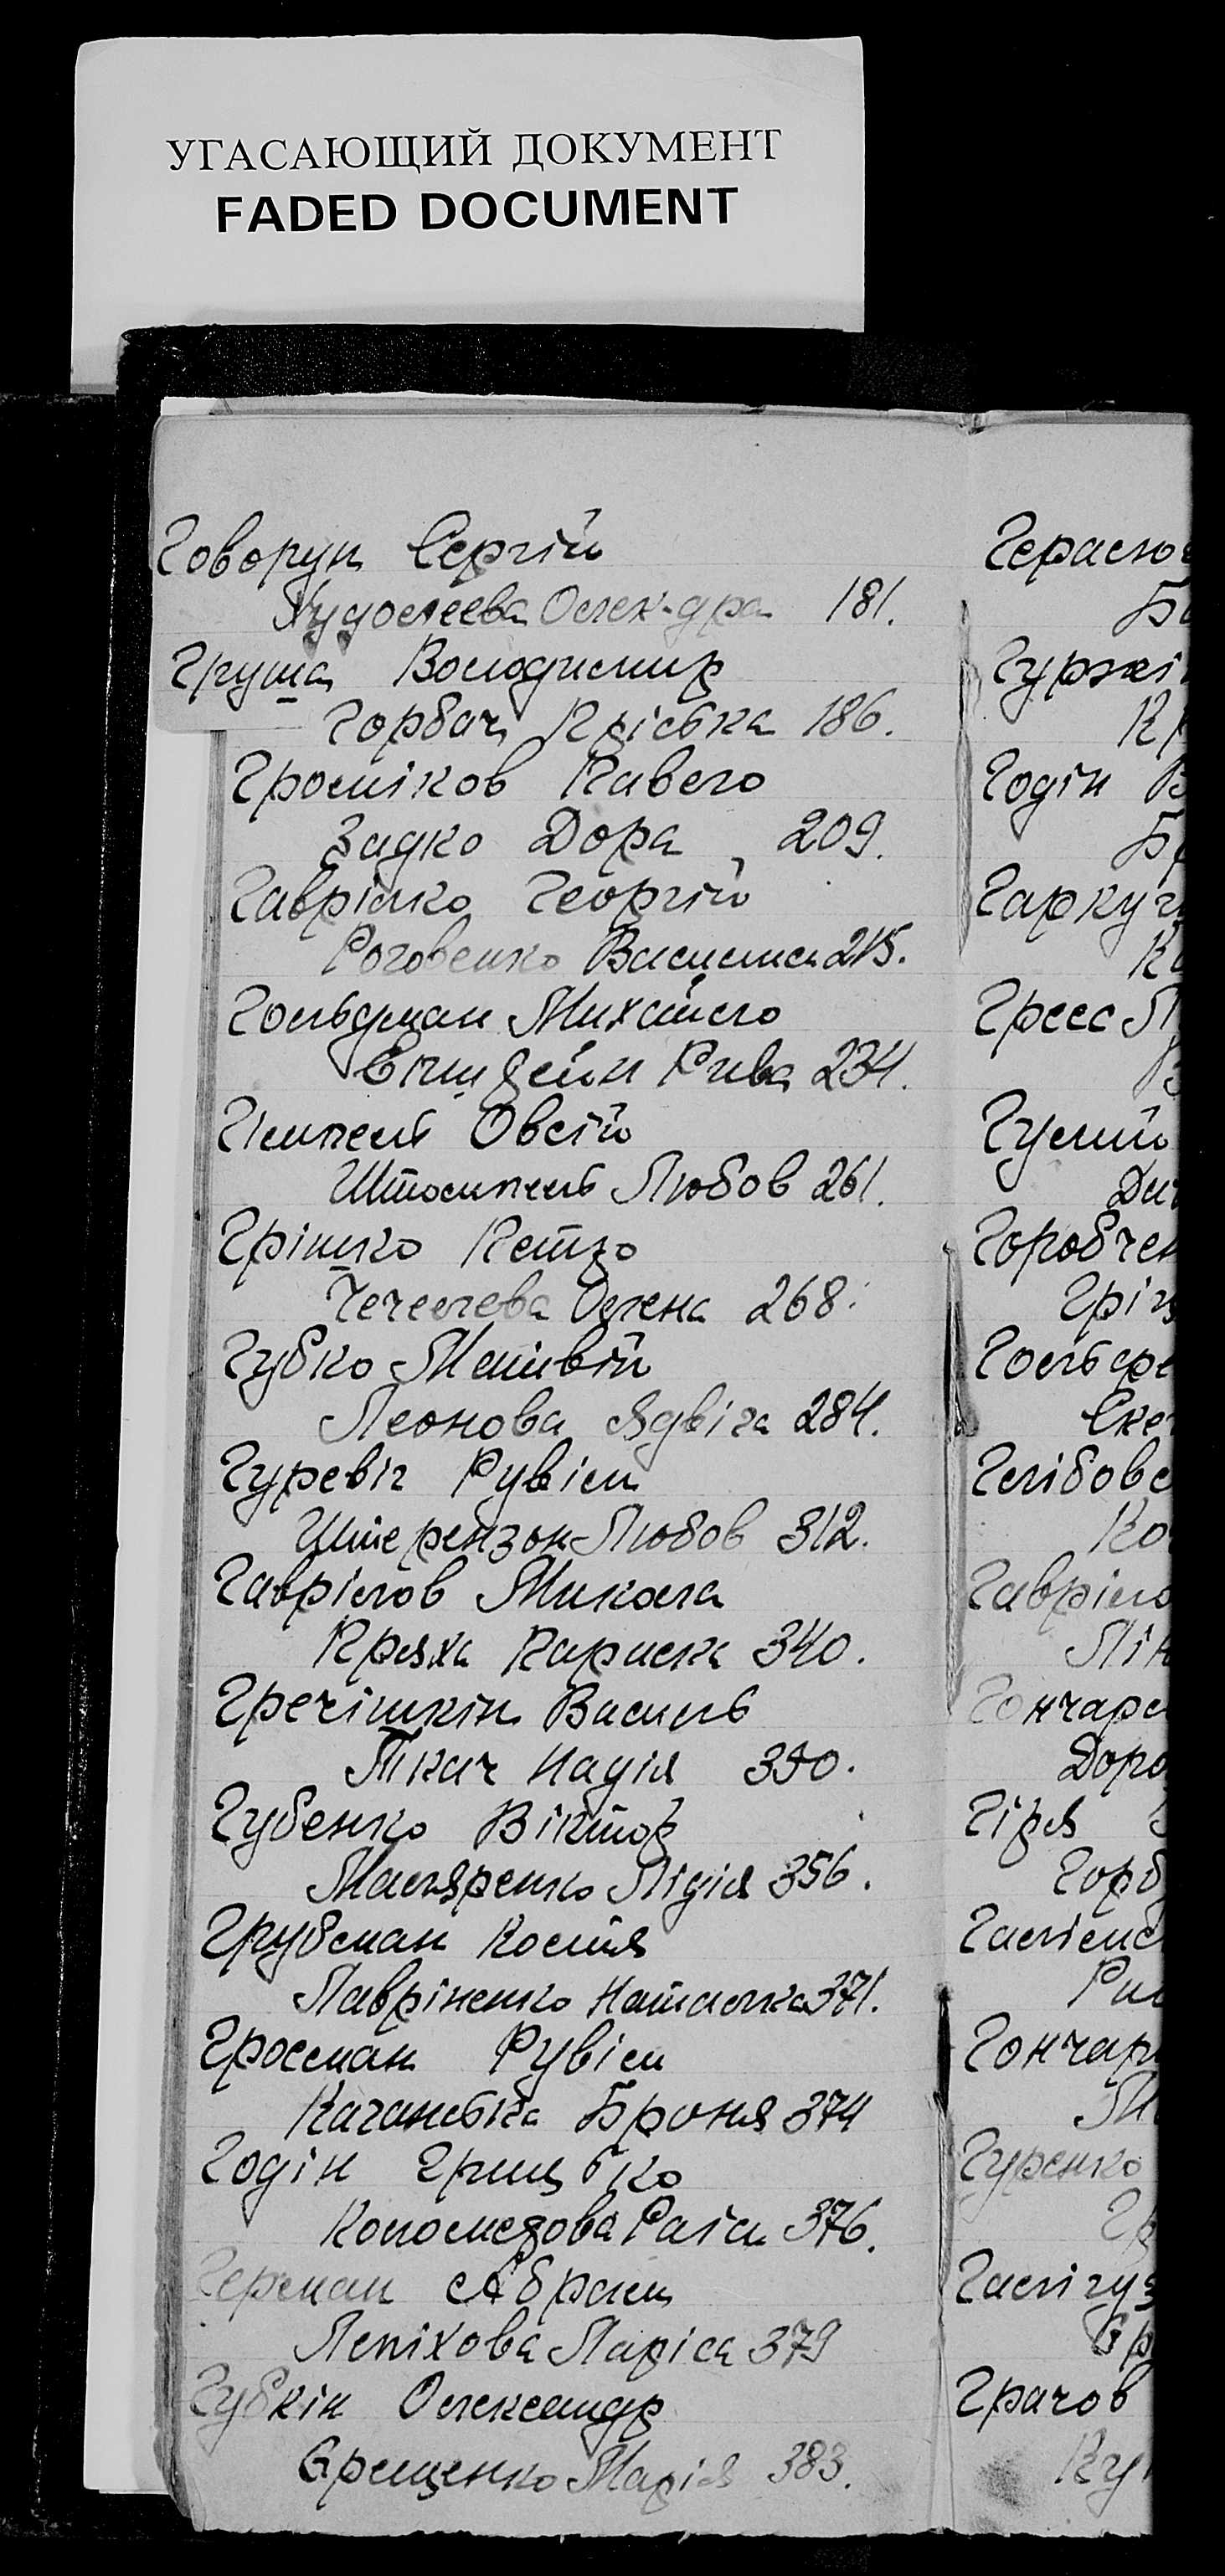 УГАСАЮЩИЙ ДОКУМЕНТ
FADED DOCUMENT
Говорун Сергій
Олек-дра 181.
Груша Володимир
Горбач Кріська 186.
Громіков Павело
Задко Дора 209.
Гаврілко Георгій
Роговенко Василиса 215.
Гольдман Михайло
Рива 234.
Гімпель Овсій
Штомпель Любов 261.
Грішко Петро
Чечелева Олена 268.
Губко Матвій
Леонова Ядвіга 284.
Гуревіч Рувім
Штерензон Любов 312.
Гаврілов Микола
Кряха 340.
Гречішкін Василь
Ткач Надія 350.
Губенко Віктор
Маляренко Лідія 356.
Грубман Костя
Лавріненко Наталка 371.
Гроссман Рувім
Качанська Броня 374
Годін Грицько
Раїса 376.
Герман Абрам
Лепіхова Ларіса 379
Губкін Олександр
Єрещенко Марія 383.
Герасю
Б
Гуржі
Кр
Годін В
Б
Гаркуч
К
Гресс Л
Гумий
Ди
Горобчен
Гріц
Гольфе
Ске
Глібовс
Ко
Гаврілю
Лін
Гончаре
Доро
Гіря
Горб
Ри
Гончар
М
Гуренко
Гр
Єр
Грачов
Ку